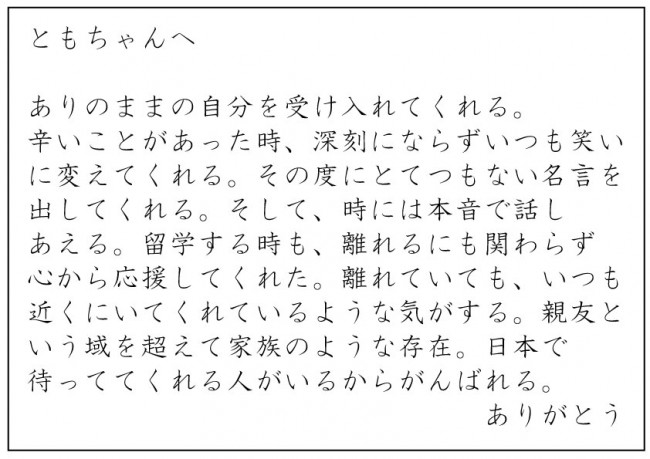 ともちゃんへ
ありのままの自分を受け入れてくれる。
辛いことがあった時、深刻にならずいつも笑い
に変えてくれる。その度にとてつもない名言を
出してくれる。そして、時には本音で話し
あえる。留学する時も、離れるにも関わらず
心から応援してくれた。離れていても、いつも
近くにいてくれているような気がする。親友と
いう域を超えて家族のような存在。日本で
待っててくれる人がいるからがんばれる。
ありがとう